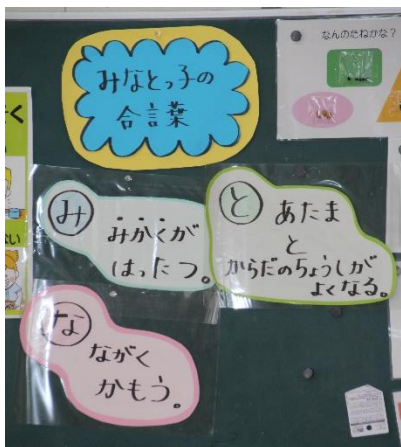 みなとっ子の
合言葉
なんのたねかな?
み
みかくが
はったつ。
と
あたま
と
からだのちょうしが
よくなる。
な
ながく
かもう。